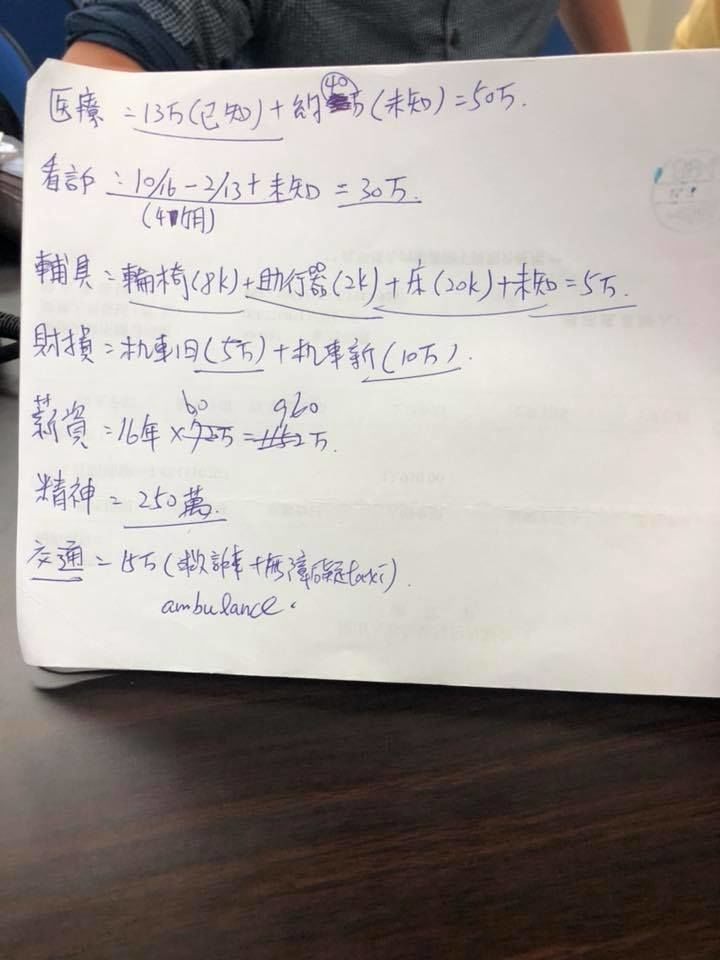 医療 = 13万(已知) + 約40万(未知) = 50万.
看診 : 10/16 - 2/13 + 未知 = 30万.
(4個月)
輔具 = 輪椅(8k) + 助行器(2k) + 床(20k) + 未知 = 5万.
財損 = 机車旧(5万) + 机車新(10万).
60 960
薪資 = 16年 × 72万 = 1152万.
精神 = 250萬.
交通 = 15万(救診車 + 無障礙taxi).
ambulance.